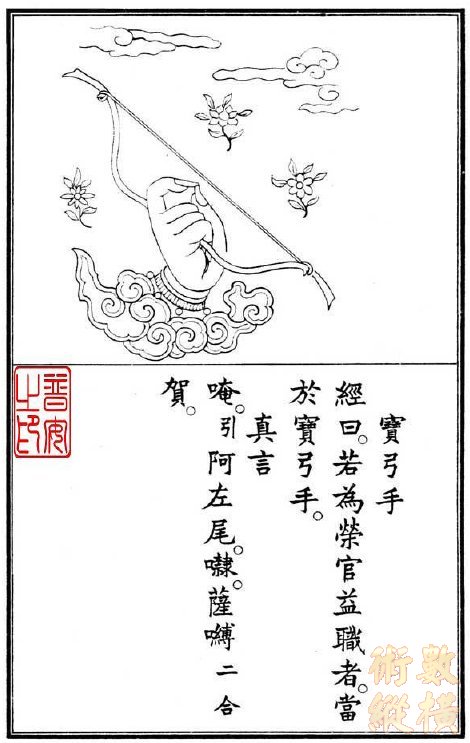 寶弓手
經曰。若為榮官益職者。當
於寶弓手。
真言
唵。引阿左尾。㘑。薩嚩二合
賀。
普安之印
術數
縱橫